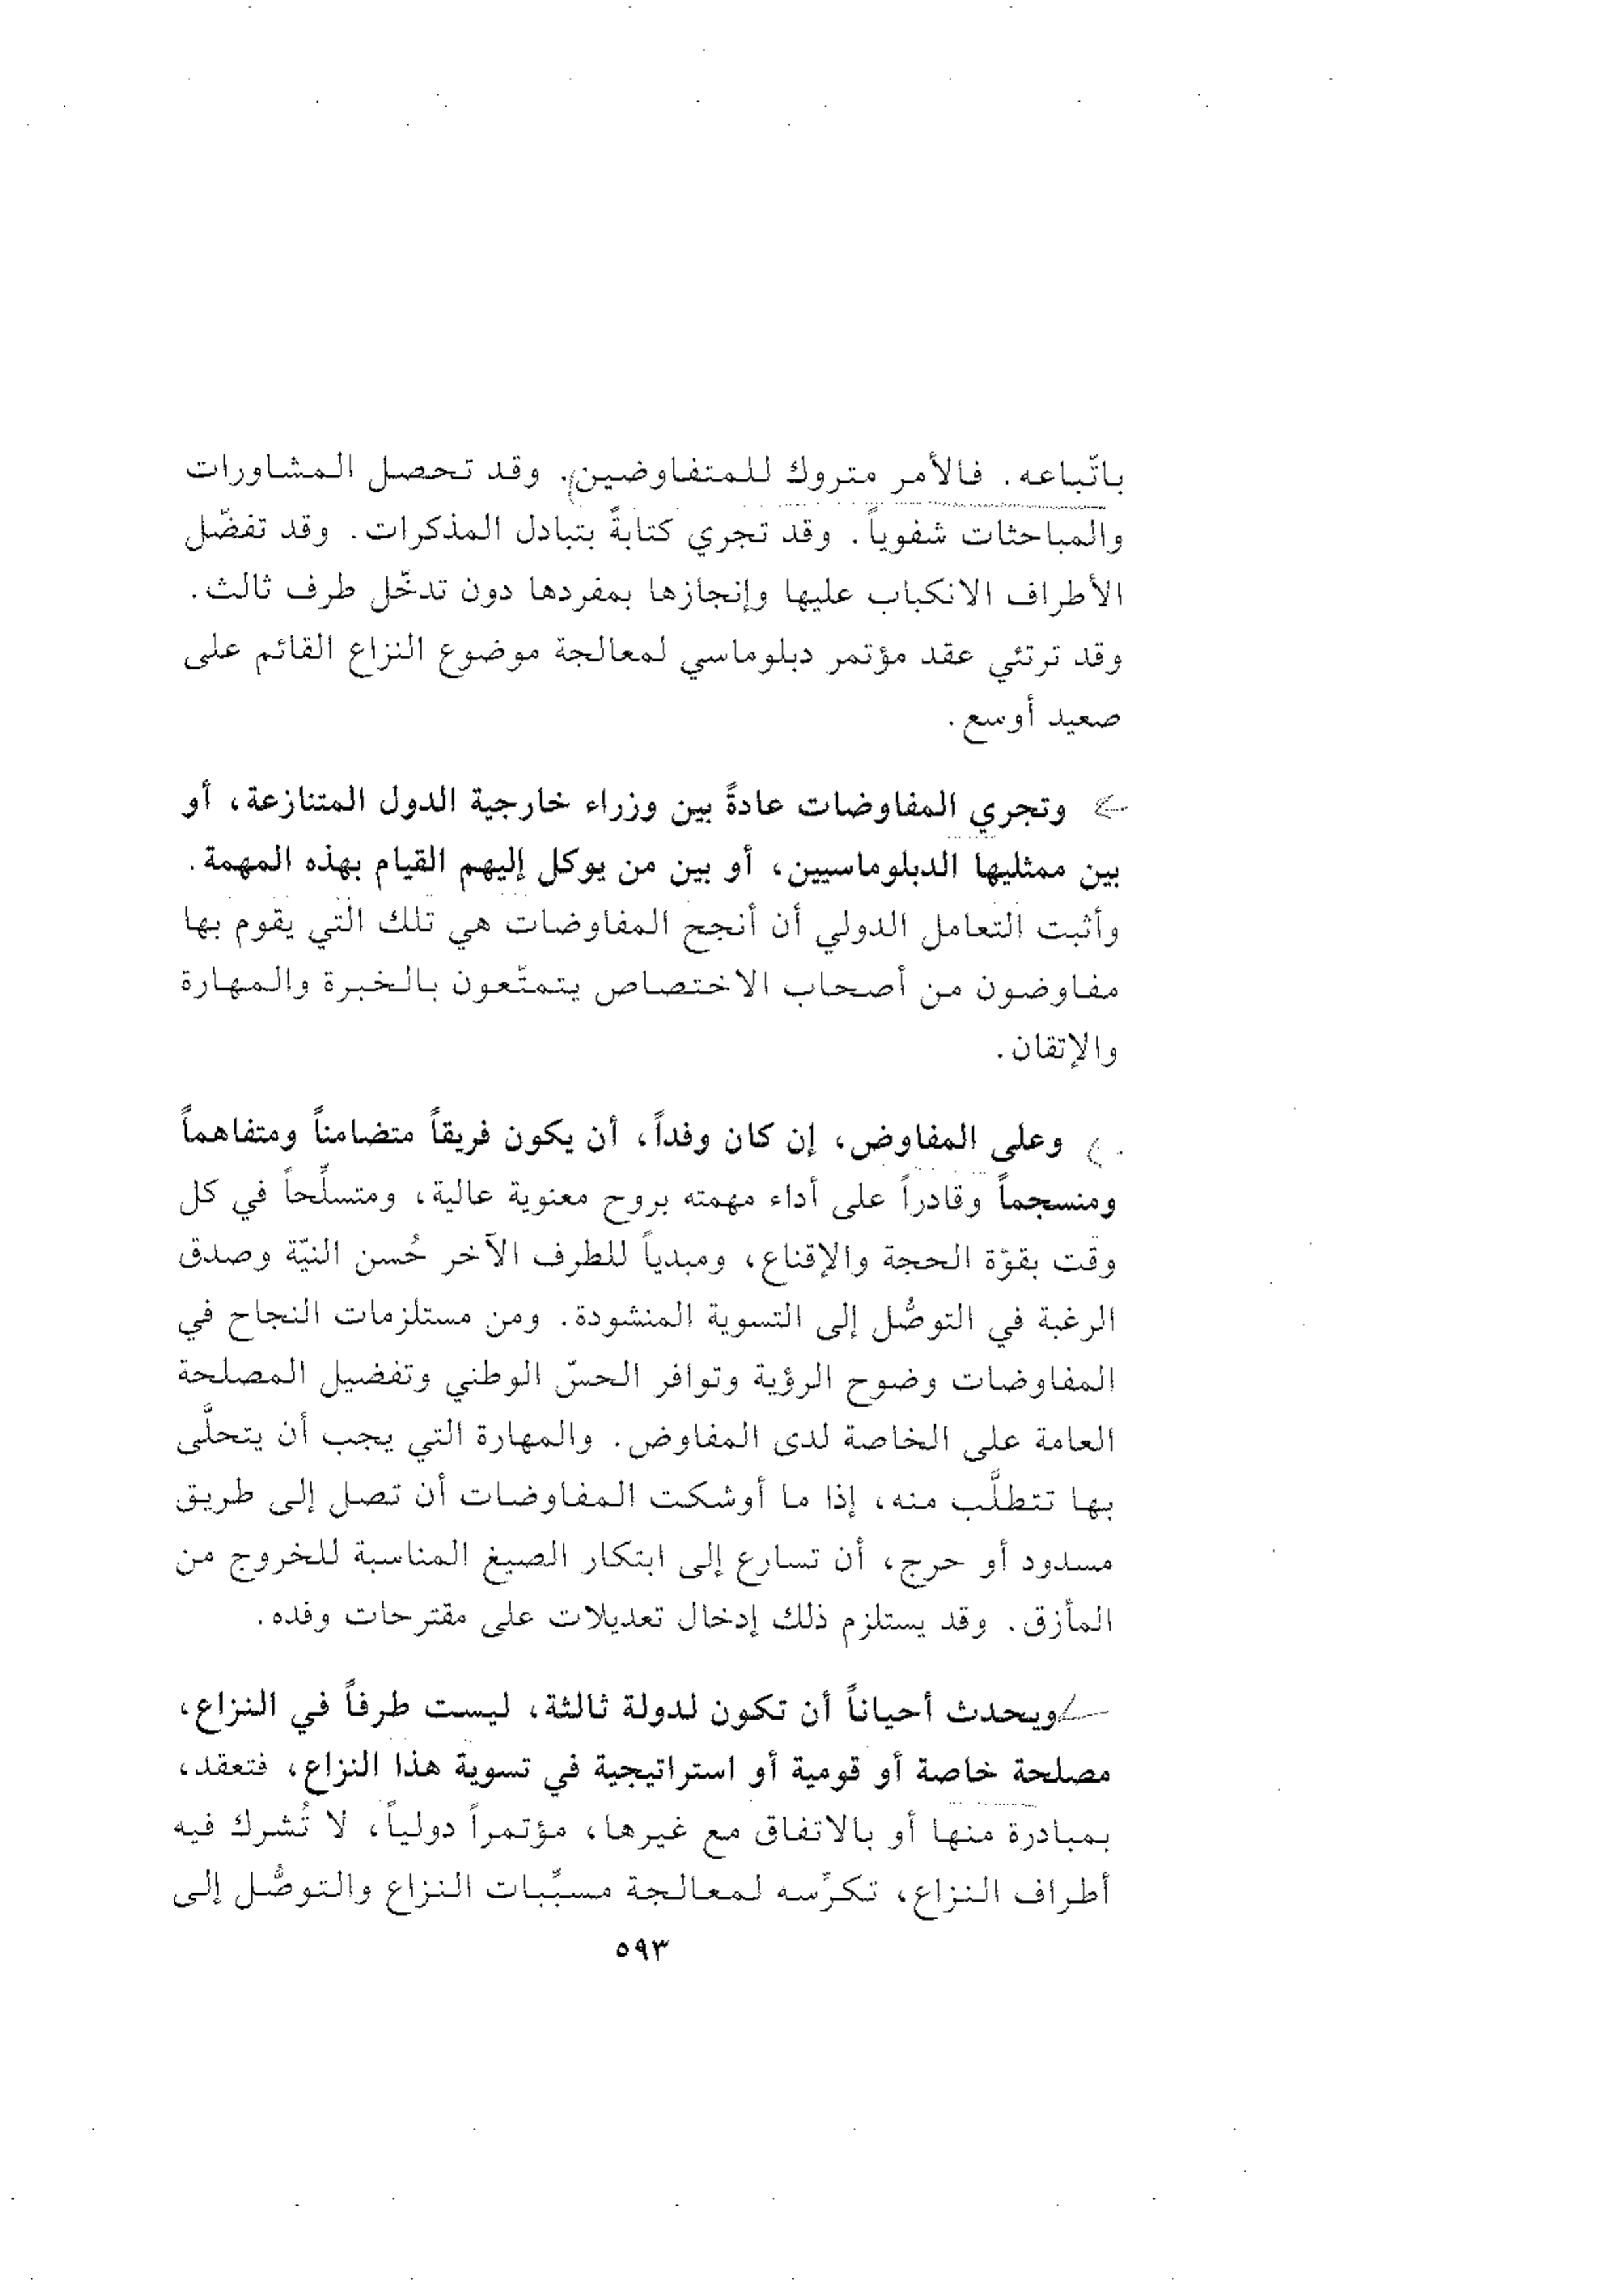 باتّباعه. فالأمر متروك للمتفاوضين. وقد تحصل المشاورات
والمباحثات شفوياً. وقد تجري كتابةً بتبادل المذكرات. وقد تفضّل
الأطراف الانكباب عليها وإنجازها بمفردها دون تدخّل طرف ثالث.
وقد ترتئي عقد مؤتمر دبلوماسي لمعالجة موضوع النزاع القائم على
صعيد أوسع.
وتجري المفاوضات عادةً بين وزراء خارجية الدول المتنازعة، أو
بين ممثليها الدبلوماسيين، أو بين من يوكل إليهم القيام بهذه المهمة.
وأثبت التعامل الدولي أن أنجح المفاوضات هي تلك التي يقوم بها
مفاوضون من أصحاب الاختصاص يتمتّعون بالخبرة والمهارة
والإتقان.
وعلى المفاوض، إن كان وفداً، أن يكون فريقاً متضامناً ومتفاهماً
ومنسجماً وقادراً على أداء مهمته بروح معنوية عالية، ومتسلّحاً في كل
وقت بقوّة الحجة والإقناع، ومبدياً للطرف الآخر حُسن النيّة وصدق
الرغبة في التوصُّل إلى التسوية المنشودة. ومن مستلزمات النجاح في
المفاوضات وضوح الرؤية وتوافر الحسّ الوطني وتفضيل المصلحة
العامة على الخاصة لدى المفاوض. والمهارة التي يجب أن يتحلَّى
بها تتطلَّب منه، إذا ما أوشكت المفاوضات أن تصل إلى طريق
مسدود أو حرج، أن تسارع إلى ابتكار الصيغ المناسبة للخروج من
المأزق. وقد يستلزم ذلك إدخال تعديلات على مقترحات وفده.
ويحدث أحياناً أن تكون لدولة ثالثة، ليست طرفاً في النزاع،
مصلحة خاصة أو قومية أو استراتيجية في تسوية هذا النزاع، فتعقد،
بمبادرة منها أو بالاتفاق مع غيرها، مؤتمراً دولياً، لا تُشرك فيه
أطراف النزاع، تكرِّسه لمعالجة مسبِّبات النزاع والتوصُّل إلى
٥٩٣